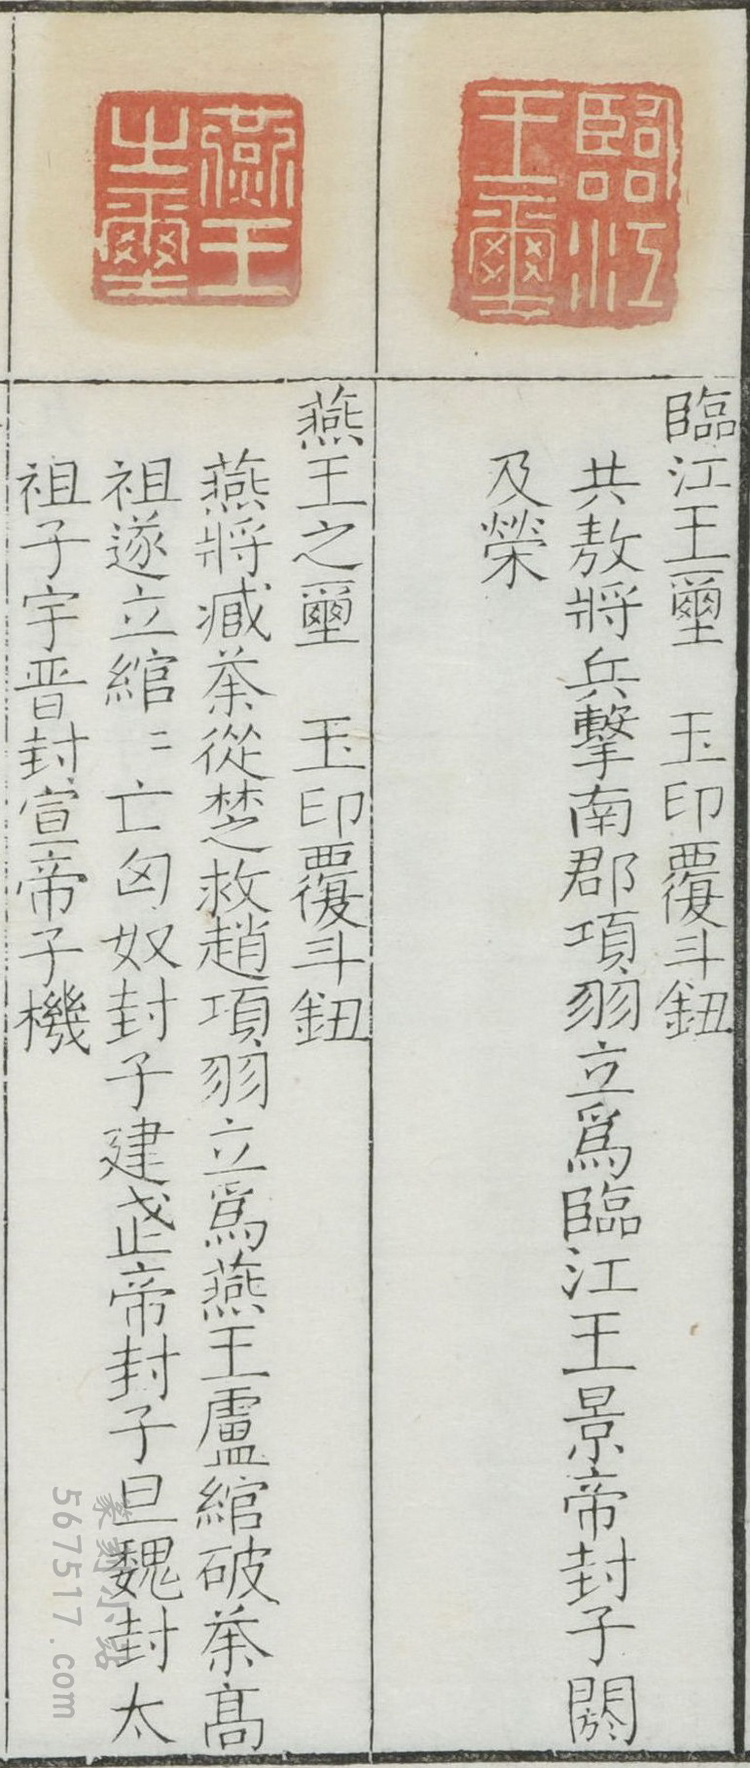 臨江王璽
臨江王壐　玉印覆斗鈕
共敖將兵擊南郡項羽立爲臨江王景帝封子閼
及榮
燕王之璽
燕王之壐　玉印覆斗鈕
燕將臧荼從楚救趙項羽立爲燕王盧綰破荼高
祖遂立綰〻亡匈奴封子建武帝封子旦魏封太
祖子宇晉封宣帝子機
篆刻小站
567517.com